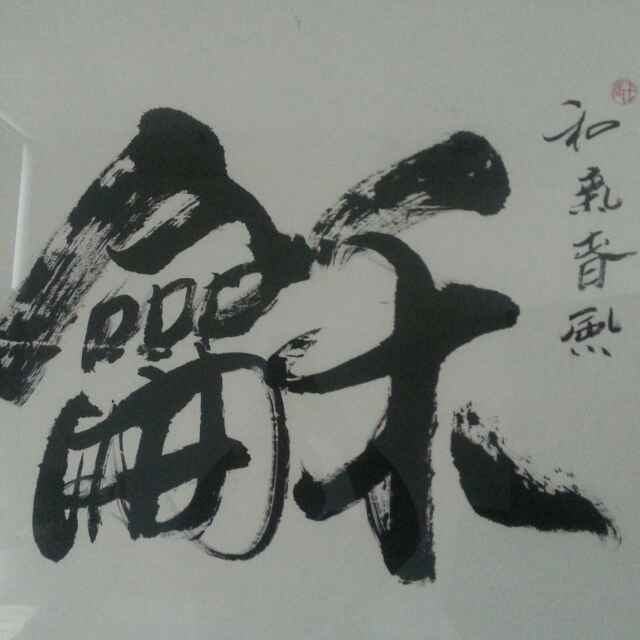 和氣香風
龢